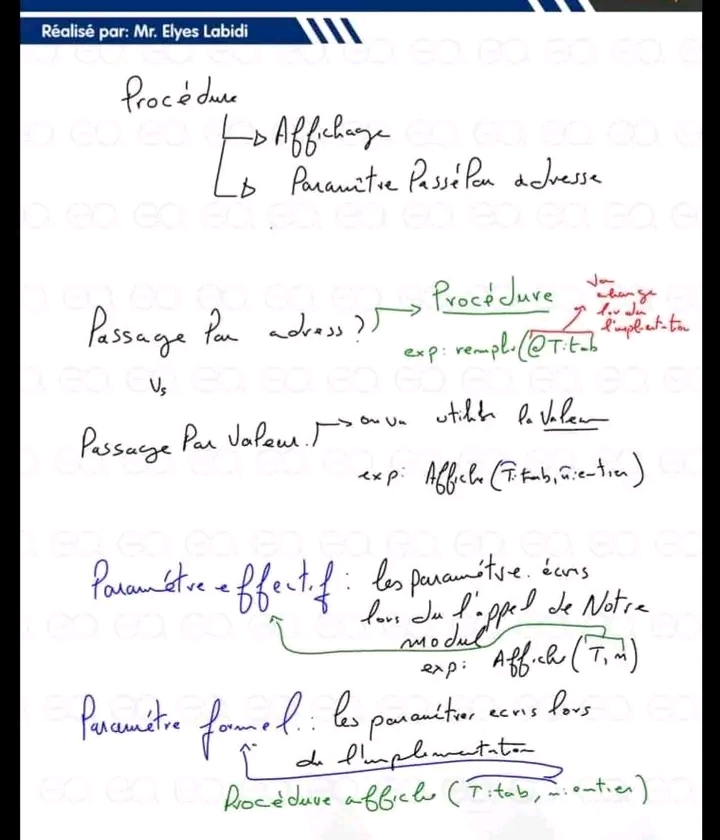 Réalisé par: Mr. Elyes Labidi
Procédure
Affichage
Paramètre Passé Par adresse
Passage Par adress?
Procédure
exp: rempli(@T:tab
va
change
lors du
l'implentation
Vs
Passage Par Valeur.
on va utilise la Valeur
exp: Affiche (T:tab, n:entier)
Paramétre effectif : les paramétre écris
lors du l'appel de Notre
modul
exp: Affiche (T, n)
Paramétre formel : les paramétres ecris lors
de l'implémentation
Procédure affiche (T:tab, n:entier)